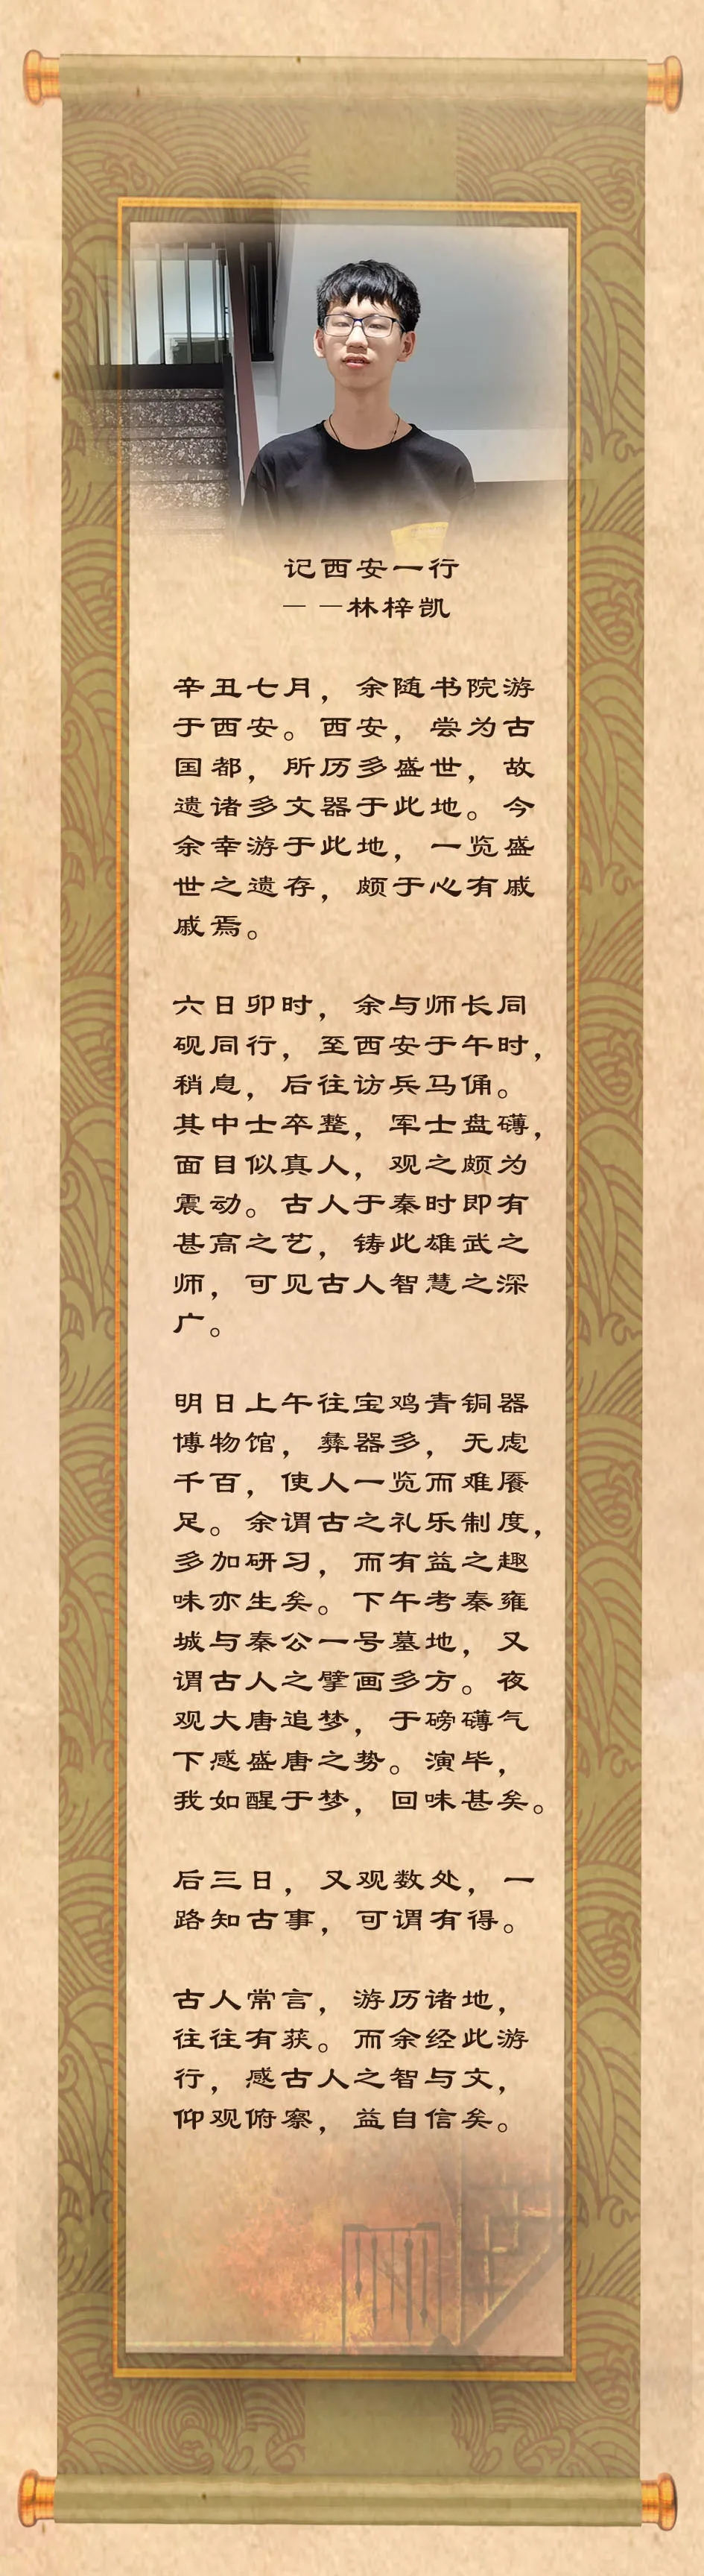 记西安一行
— —林梓凯
辛丑七月，余随书院游
于西安。西安，尝为古
国都，所历多盛世，故
遗诸多文器于此地。今
余幸游于此地，一览盛
世之遗存，颇于心有戚
戚焉。
六日卯时，余与师长同
砚同行，至西安于午时，
稍息，后往访兵马俑。
其中士卒整，军士盘礴，
面目似真人，观之颇为
震动。古人于秦时即有
甚高之艺，铸此雄武之
师，可见古人智慧之深
广。
明日上午往宝鸡青铜器
博物馆，彝器多，无虑
千百，使人一览而难餍
足。余谓古之礼乐制度，
多加研习，而有益之趣
味亦生矣。下午考秦雍
城与秦公一号墓地，又
谓古人之擘画多方。夜
观大唐追梦，于磅礴气
下感盛唐之势。演毕，
我如醒于梦，回味甚矣。
后三日，又观数处，一
路知古事，可谓有得。
古人常言，游历诸地，
往往有获。而余经此游
行，感古人之智与文，
仰观俯察，益自信矣。